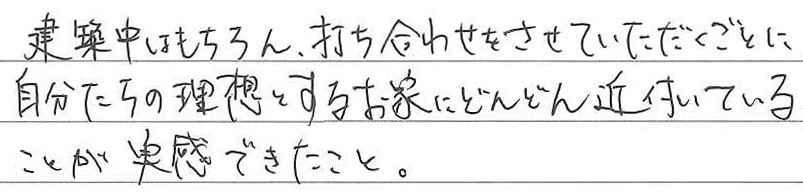 建築中はもちろん、打ち合わせをさせていただくごとに
自分たちの理想とするお家にどんどん近付いている
ことが実感できたこと。